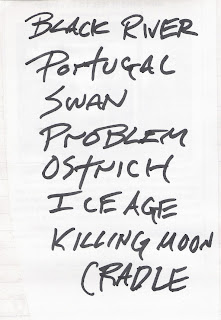 BLACK RIVER
PORTUGAL
SWAN
PROBLEM
OSTRICH
ICE AGE
KILLING MOON
CRADLE